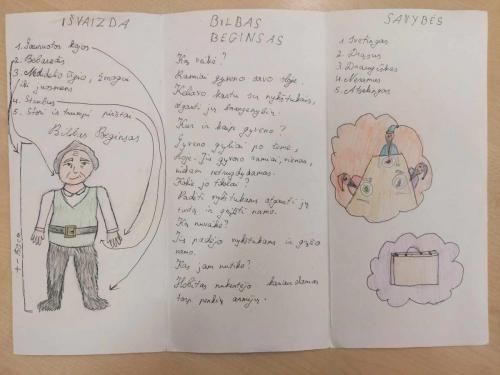 IŠVAIZDA
1. Šiurkštos kojos
2. Basas
3. Mažo ūgio, žmogui
iki juosmens
4. Stambus
5. Stori ir trumpi pirštai
Bilbas Beginsas
BILBAS
BEGINSAS
Ką veikė?
Ramiai gyveno savo oloje.
Keliavo kartu su nykštukais,
atgauti jų brangenybių.
Kur ir kaip gyveno?
Gyveno giliai po žeme,
oloje. Jis gyveno ramiai, vienas,
niekam netrukdydamas.
Kokie jo tikslai?
Padėti nykštukams atgauti jų
turtą ir grįžti namo.
Ką nuveikė?
Jis padėjo nykštukams ir grįžo
namo.
Kas jam nutiko?
Hobitas nukentėjo
tarp penkių armijų.
SAVYBĖS
1. Svetingas
2. Drąsus
3. Draugiškas
4. Neramus
5. Atsakingas